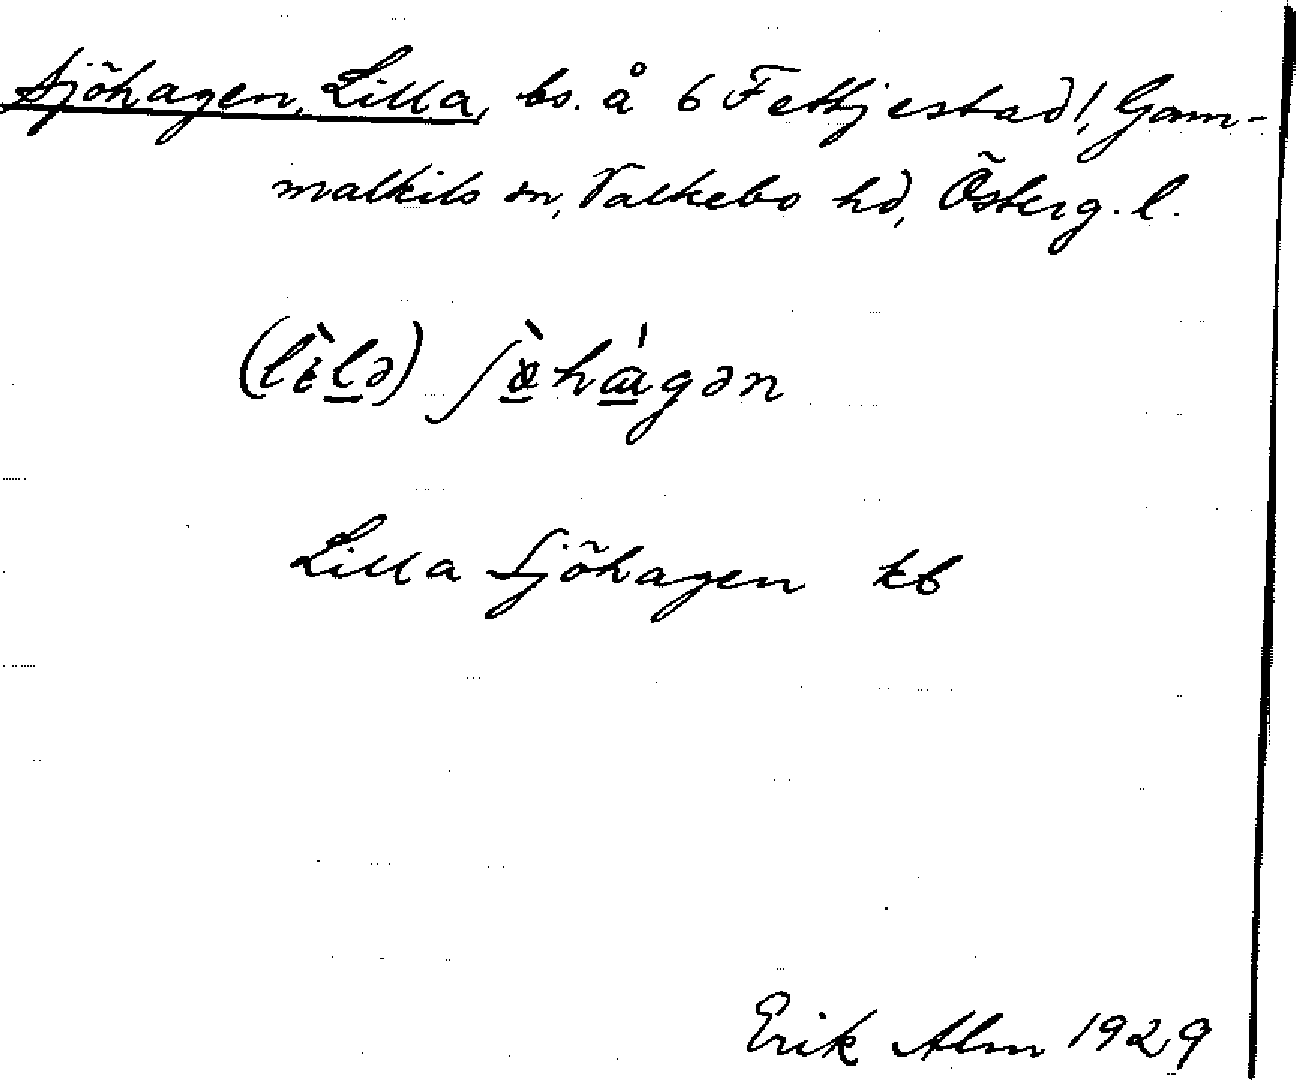 Sjöhagen, Lilla, bs. å 6 Fettjestad!, Gam-
malkils sn, Valkebo hd, Österg. l.
(lìlə) ʃø̀hɑ́gən
Lilla Sjöhagen kb
Erik Alm 1929